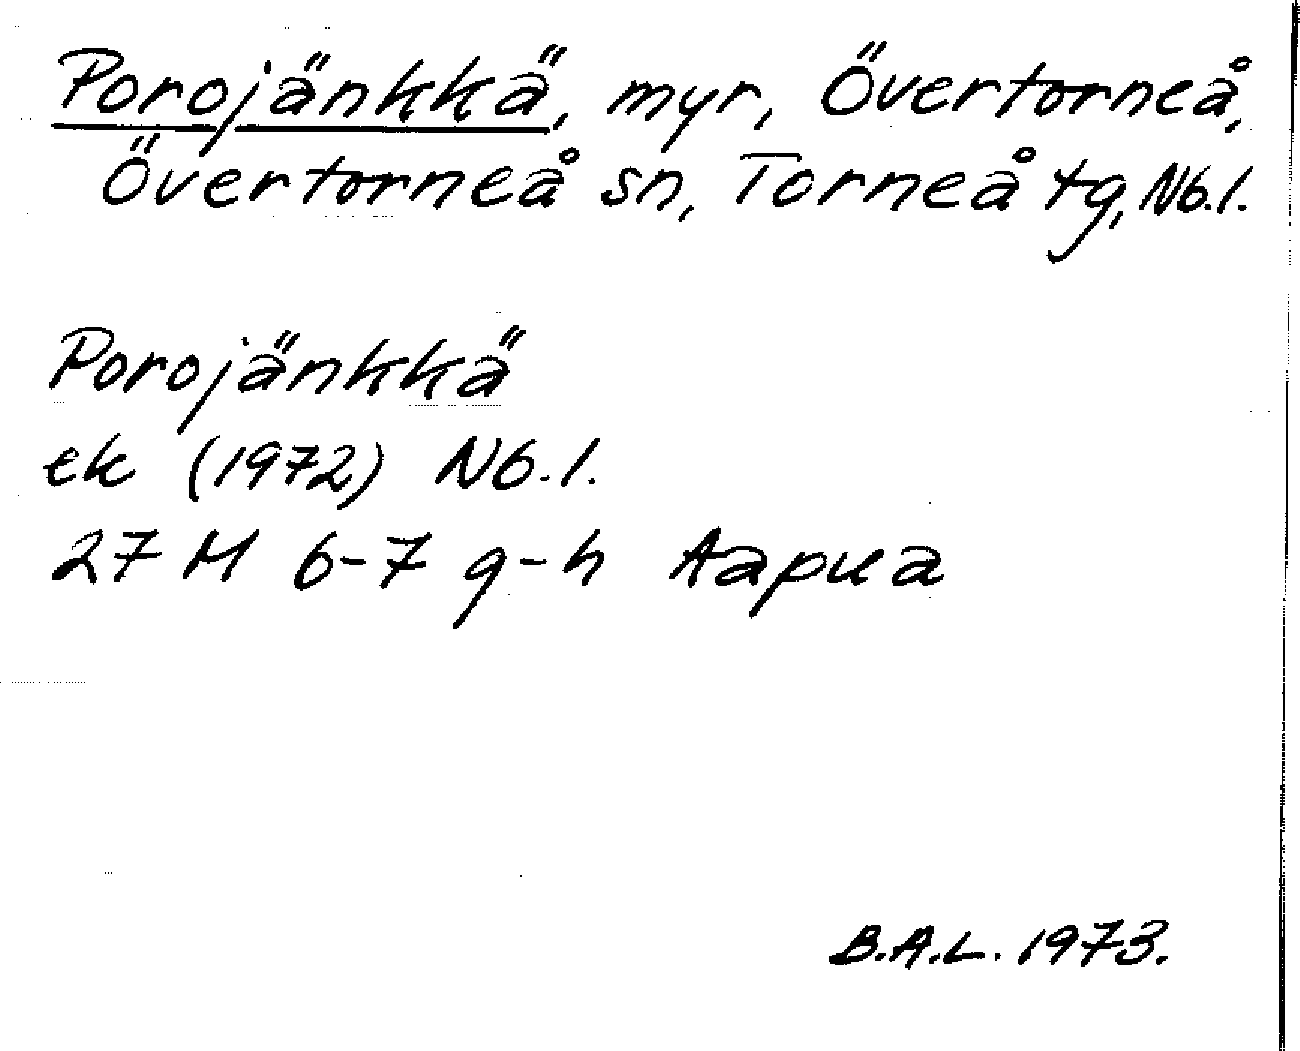 Porojänkkä, myr, Övertorneå,
Övertorneå sn, Torneå tg, Nb.l.
Porojänkkä
ek (1972) Nb.l.
27 M 6-7 g-h Aapua
B.A.L. 1973.